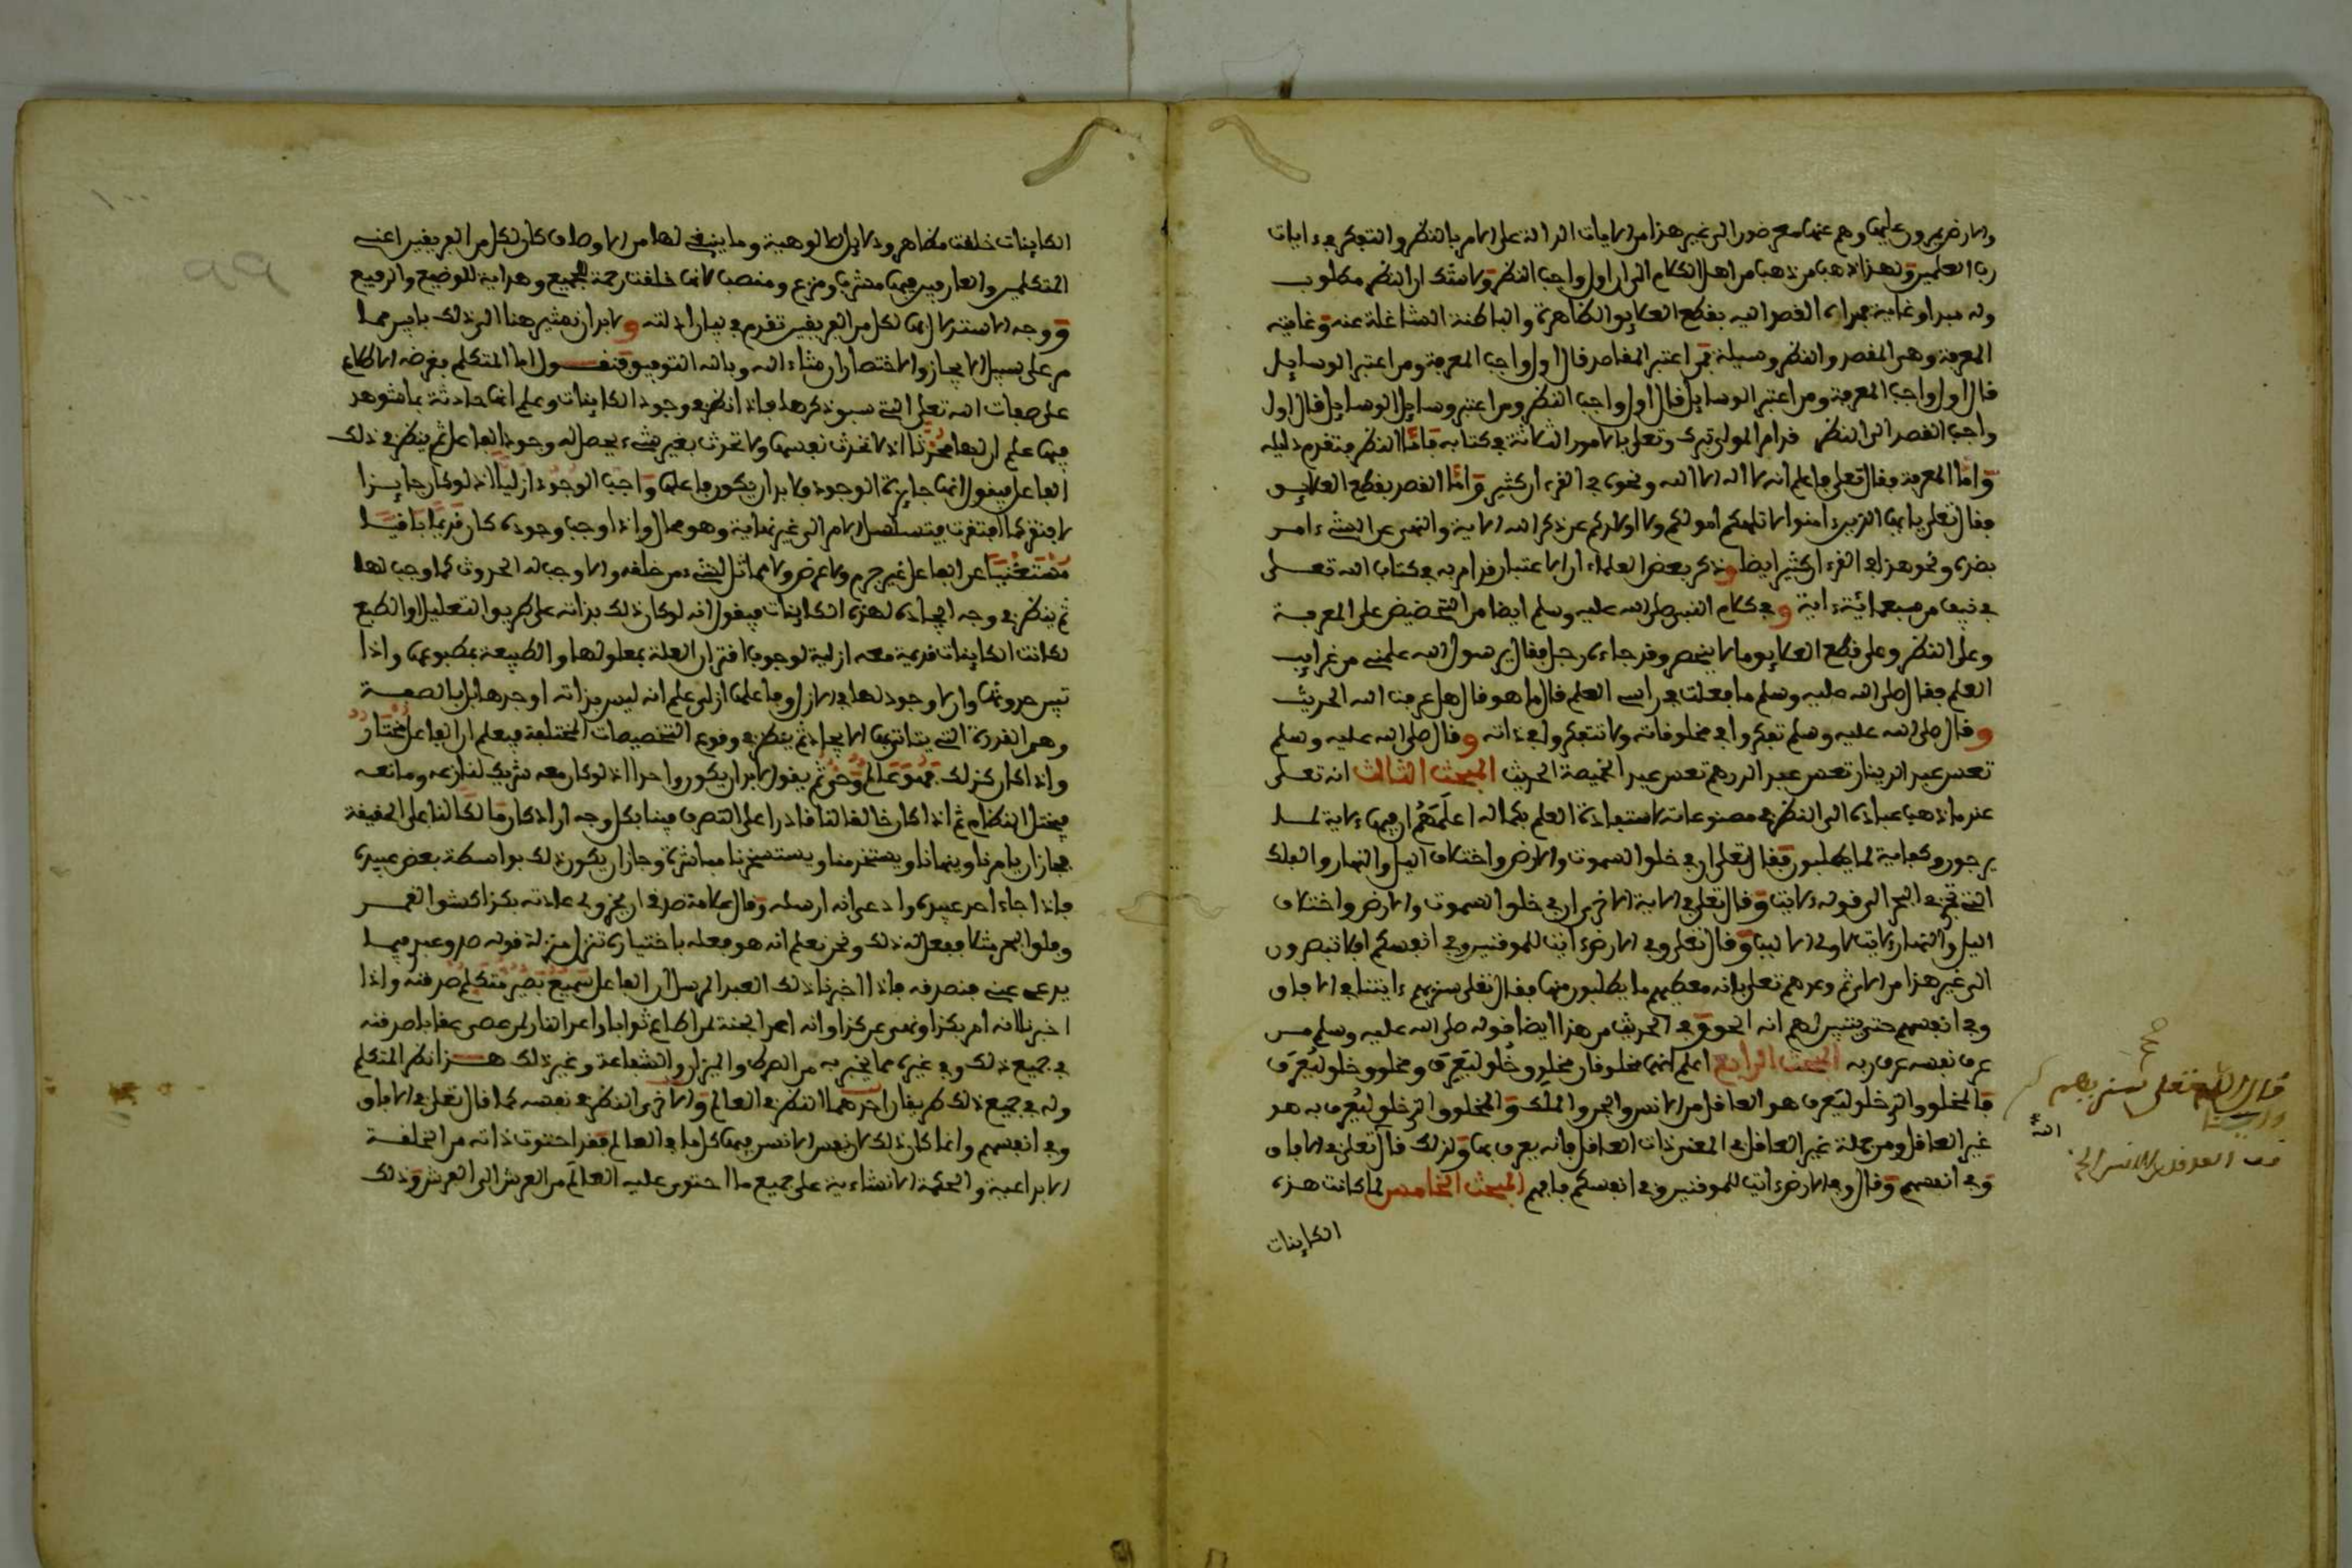 والارض يمرون عليها وهم عنها معرضون الى غير هذا من الايات الدالة على الامر بالنظر والتفكر في ءايات
رب العلمين ولهذا ذهب من ذهب من اهل الكلام الى ان اول واجب النظر ولا شك ان النظر مطلوب
وله مبدا وغاية فمبداه القصد اليه بقطع العلايق الظاهرة والباطنة الشاغلة عنه وغايته
المعرفة وهي المقصد والنظر وسيلة فمن اعتبر المقاصد قال اول واجب المعرفة ومن اعتبر الوسايل
قال اول واجب المعرفة ومن اعتبر الوسايل قال اول واجب النظر ومن اعتبر وسايل الوسايل قال اول
واجب القصد الى النظر فدام المولى تبرك وتعلى بالامور الثلاثة في كتابه فاما النظر فتقدم دليله
واما المعرفة فقال تعلى فاعلم انه لا اله الا الله ونحوه في القرءان كثير واما القصد بقطع العلايق
فقال تعلى يايها الذين ءامنوا لا تلهكم امولكم ولا اولدكم عن ذكر الله الاية والنهي عن الشيء امر
بضده ونحو هذا في القرءان كثير ايضا وذكر بعض العلماء ان الاعتبار قد امر به في كتاب الله تعلى
في نيف من سبعمائة ءاية وفي كلام النبي صلى الله عليه وسلم ايضا من التحضيض على المعرفة
وعلى النظر وعلى قطع العلايق ما لا ينحصر وقد جاءه رجل فقال يرسول الله علمني من غرايب
العلم فقال صلى الله عليه وسلم ما فعلت في راس العلم قال ما هو قال هل عرفت الله الحديث
وقال صلى الله عليه وسلم تفكروا في مخلوقاته ولا تتفكروا في ذاته وقال صلى الله عليه وسلم
تعس عبد الدينار تعس عبد الدرهم تعس عبد الخميصة الحديث المبحث الثالث انه تعلى
عندما ذهب عباده الى النظر في مصنوعاته لاستفادة العلم بكماله اعلمهم ان فيها ءاية لما
يرجون وكفاية لما يطلبون فقال تعلى ان في خلق السموت والارض واختلاف اليل والنهار والفلك
التي تجري في البحر الى قوله لايت وقال تعلى في الاية الاخرى ان في خلق السموت والارض واختلاف
اليل والنهار لايت لاولى الالبب وقال تعلى وفي الارض ءايت للموقنين وفي انفسكم افلا تبصرون
الى غير هذا من الاي ثم وعدهم تعلى بانه معطيهم ما يطلبون منها فقال تعلى سنريهم ءايتنا في الافاق
وفي انفسهم حتى يتبين لهم انه الحق وفي الحديث من هذا ايضا قوله صلى الله عليه وسلم من
عرف نفسه عرف ربه المبحث الرابع اعلم انهما مخلوقان مخلوق خلق ليعرف ومخلوق خلق ليعرف
فالمخلوق الذي خلق ليعرف هو العاقل من الانس والجن والملك والمخلوق الذي خلق ليعرف به هو
غير العاقل ومن جملة غير العاقل في المعنى ذات العاقل فانه يعرف بها ولذلك قال تعلى في الافاق
وفي انفسهم وقال وفي الارض ءايت للموقنين وفي انفسكم فافهم المبحث الخامس لما كانت هذه
الكاينات
قال الله تعلى سنريهم
الكاينات خلقت مظاهر ودلايل للالوهية وما ينبغي لها من الاوصاف كان لكل من الفريقين اعني
المتكلمين والعارفين فيها مشرب ومنزع ومنصب لانها خلقت رحمة للجميع وهداية للوضيع والرفيع
ووجه الاستدلال بها لكل من الفريقين تقدم في بيان ادلته ولا بد ان نشير هنا الى ذلك بايسر مما
مر على سبيل الايجاز والاختصار ان شاء الله وبالله التوفيق فنقول اما المتكلم بغرضه الاطلاع
على صفات الله تعلى التي سبق ذكرها فاذا نظر في وجود الكاينات وعلم انها حادثة بما شوهد
فيها علم ان لها محدثا اذ لا تحدث نفسها ولا تحدث بغير شيء يحصل له وجود الفاعل ثم ينظر في ذلك
الفاعل فيقول انها جايزة الوجود ولا بد ان يكون فاعلها واجب الوجود ازليا اذ لو كان جايزا
لافتقر كما افتقرت فيتسلسل الامر الى غير نهاية وهو محال واذا وجب وجوده كان قديما باقيا
مستغنيا عن الفاعل غير جرم ولا عرض ولا مماثل لشيء من خلقه والا وجب له الحدوث كما وجب لها
ثم ينظر في وجه ايجاده لهذه الكاينات فيقول انه لو كان ذلك بذاته على طريق التعليل او الطبع
لكانت الكاينات قديمة معه ازلية لوجوب اقتران العلة بمعلولها والطبيعة بمطبوعها واذا
تبين حدوثها وان لا وجود لها في الازل وفاعلها ازلي علم انه ليس بذاته اوجدها بل بالصفة
وهي القدرة التي يتاتى بها الايجاد ثم ينظر في وقوع التخصيصات المختلفة فيعلم ان الفاعل مختار
واذا كان كذلك فهو عالم وحي ثم يقول لا بد ان يكون واحدا اذ لو كان معه شريك لنازعه ومانعه
فيختل النظام ثم اذا كان خالقا لنا قادرا على التصرف فينا بكل وجه اراد كان مالكا لنا على الحقيقة
فجاز ان يامرنا وينهانا ويستخدمنا ويستسخرنا مباشرة وجاز ان يكون ذلك بواسطة بعض عبيده
فاذا جاء احد عبيده وادعى انه ارسله وقال علامة صدقي ان يخرق لي عادته بكذا كشق القمر
وفلق البحر مثلا ففعل له ذلك ونحن نعلم انه هو فعله باختياره تنزل منزلة قوله صدق عبدي فيما
يدعي عني فنصدقه فاذا اخبرنا ذلك العبد المرسل ان الفاعل سميع بصير متكلم صدقنه واذا
اخبرنا انه امر بكذا ونهى عن كذا وانه اعد الجنة لمن اطاع ثوابا واعد النار لمن عصى عقابا صدقنه
في جميع ذلك وفي غيره مما يخبر به من الصراط والميزان والشفاعة وغير ذلك هذا نظر المتكلم
وله في جميع ذلك طريقان احدهما النظر في العالم والاخرى النظر في نفسه كما قال تعلى في الافاق
وفي انفسهم وانما كان ذلك لان نفس الانسان فيها كل ما في العالم فقد احتوت ذاته من الخلقة
الابداعية والحكمة الانشاءية على جميع ما احتوى عليه العالم من العرش الى الفرش وذلك